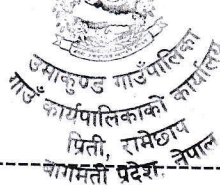 उमाकुण्ड गाउँपालिका
गाउँ कार्यपालिकाको कार्यालय
प्रिती, रामेछाप
बागमती प्रदेश, नेपाल